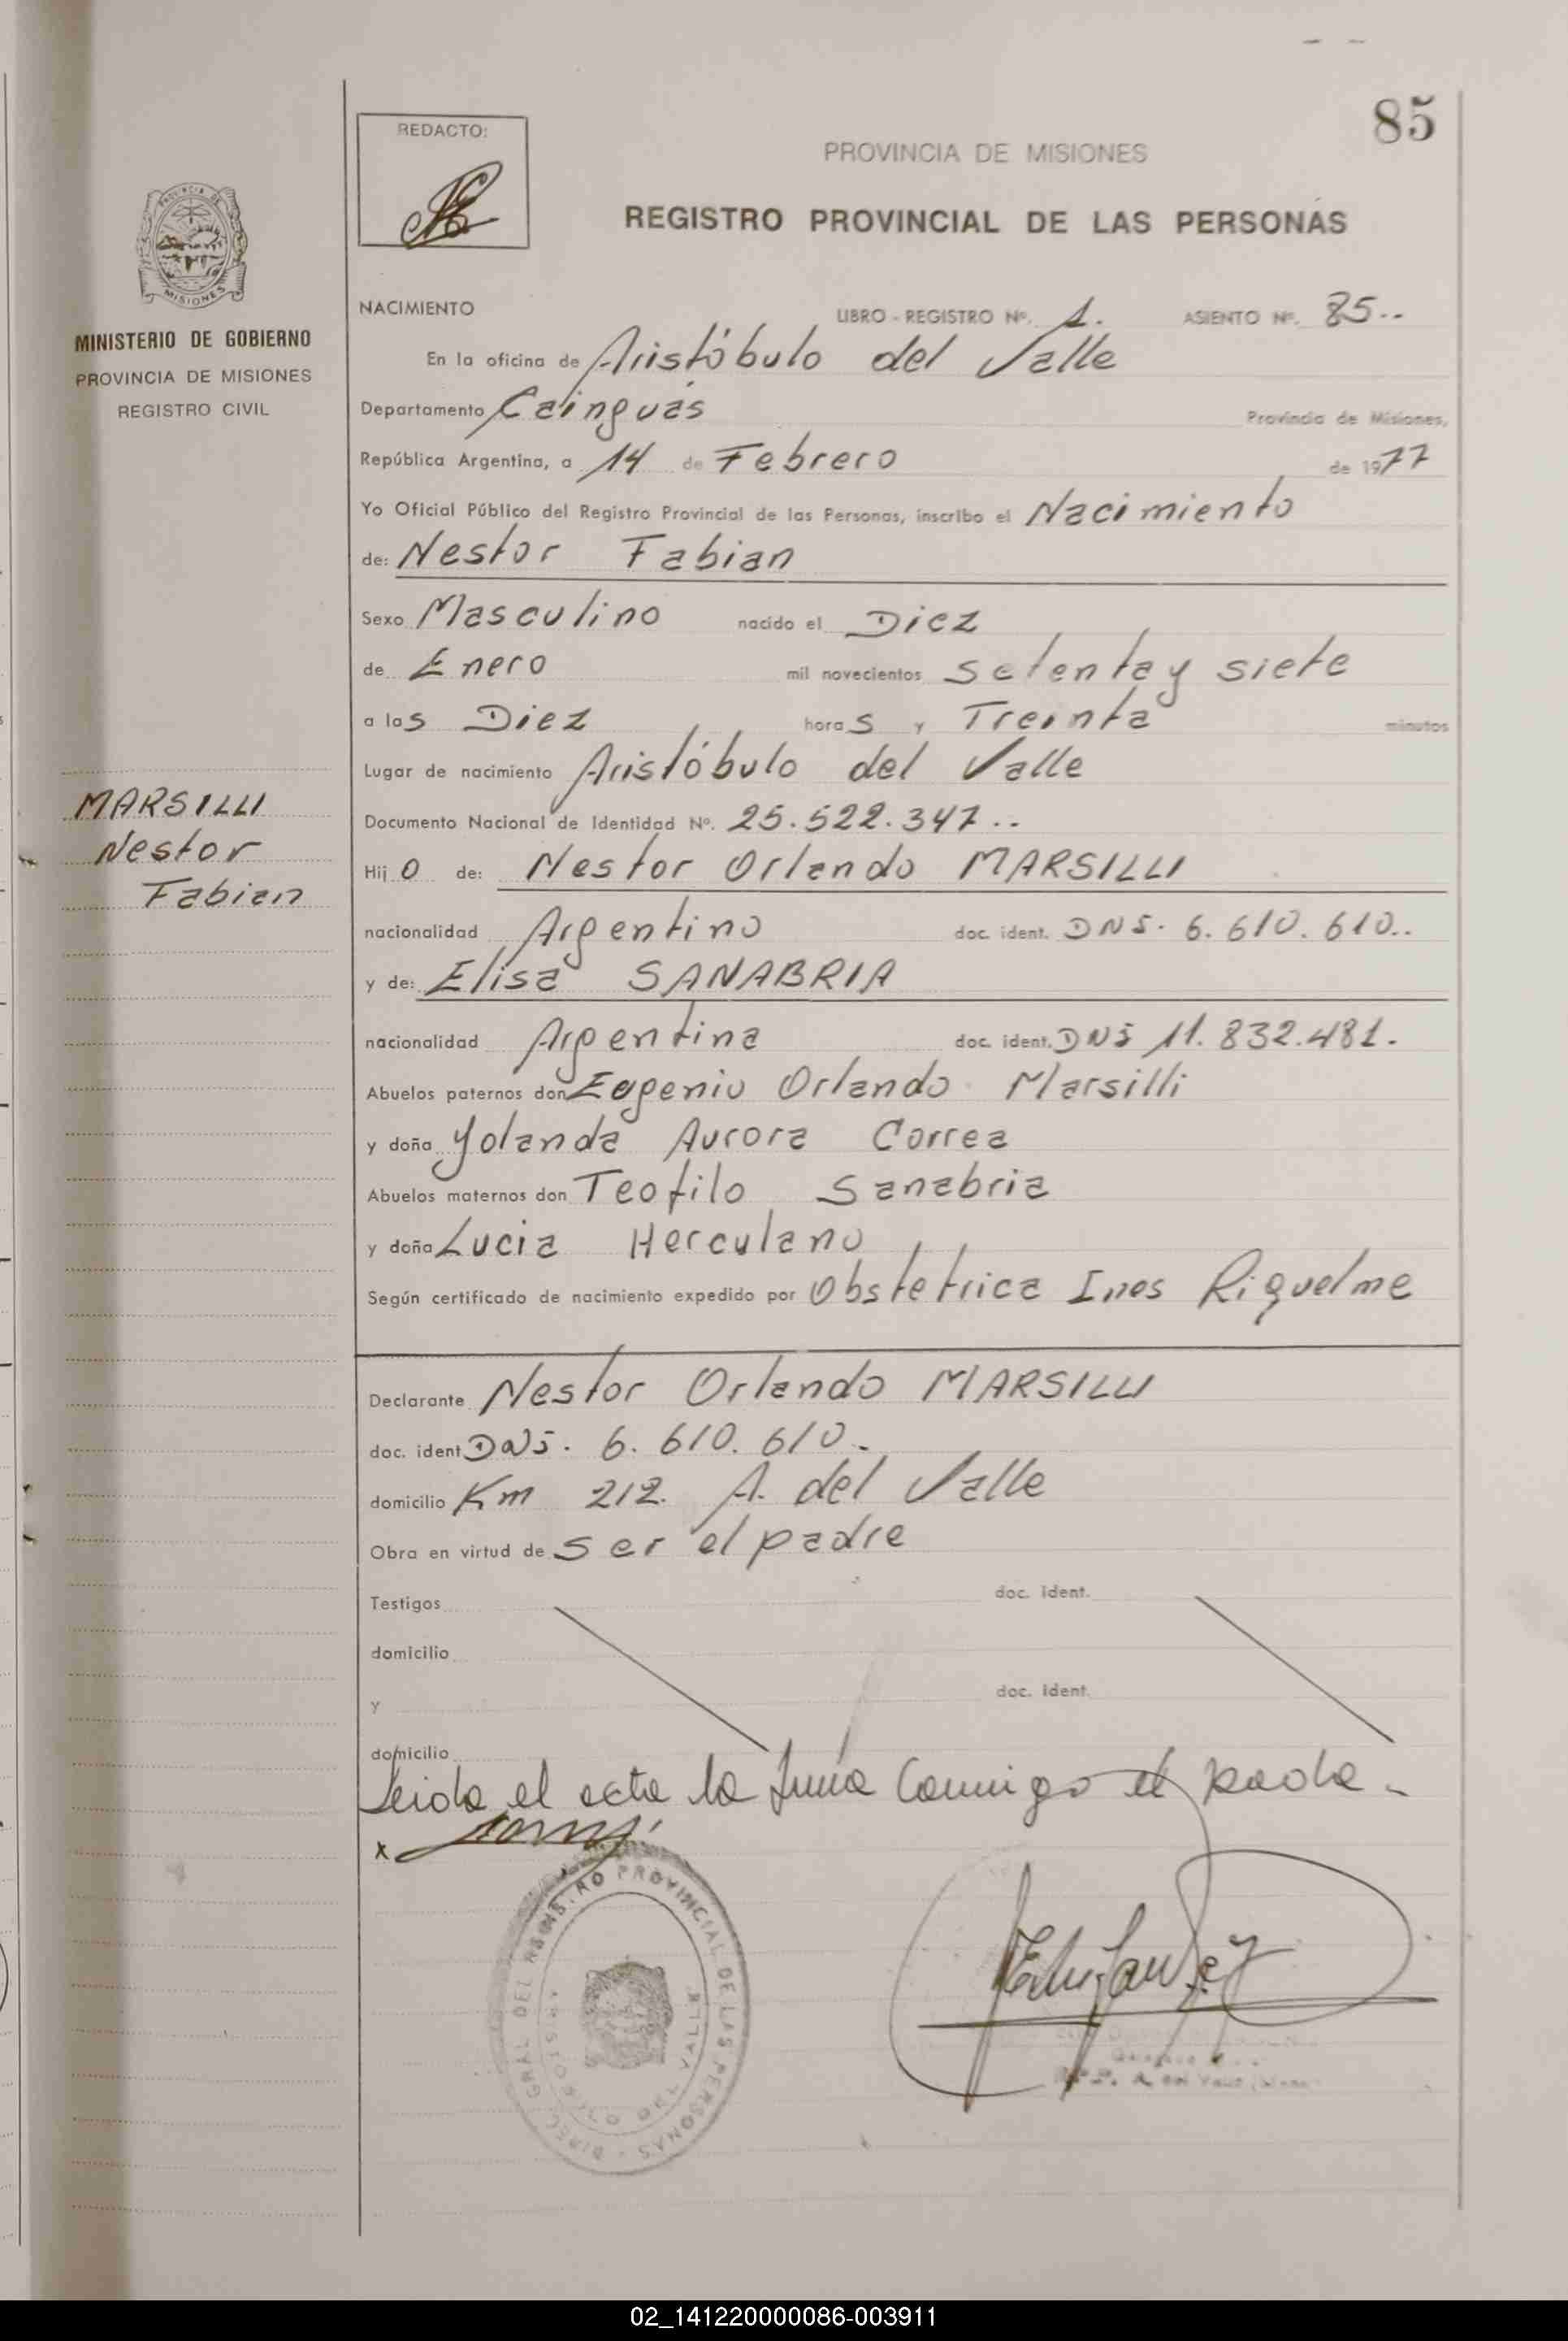 85
REDACTO:
PROVINCIA DE MISIONES
REGISTRO PROVINCIAL DE LAS PERSONAS
PROVINCIA DE
MISIONES
MINISTERIO DE GOBIERNO
PROVINCIA DE MISIONES
REGISTRO CIVIL
MARSILLI
Nestor
Fabian
NACIMIENTO LIBRO - REGISTRO Nº. 1. ASIENTO Nº. 85..
En la oficina de Aristóbulo del Valle
Departamento Cainguás Provincia de Misiones,
República Argentina, a 14 de Febrero de 1977
Yo Oficial Público del Registro Provincial de las Personas, inscribo el Nacimiento
de: Nestor Fabian
Sexo Masculino nacido el Diez
de Enero mil novecientos setenta y siete
a las Diez horas y Treinta minutos
Lugar de nacimiento Aristóbulo del Valle
Documento Nacional de Identidad Nº. 25.522.347..
Hijo de: Nestor Orlando MARSILLI
nacionalidad Argentino doc. ident. DNI. 6.610.610..
y de: Elisa SANABRIA
nacionalidad Argentina doc. ident. DNI 11.832.481.
Abuelos paternos don Eugenio Orlando Marsilli
y doña Yolanda Aurora Correa
Abuelos maternos don Teofilo Sanabria
y doña Lucia Herculano
Según certificado de nacimiento expedido por Obstetrica Ines Riquelme
Declarante Nestor Orlando MARSILLI
doc. ident DNI. 6.610.610.
domicilio Km 212. A. del Valle
Obra en virtud de ser el padre
Testigos doc. ident.
domicilio
y doc. ident.
domicilio
Leida el acta la firma conmigo el padre.-
x
DIREC. GRAL DEL REGISTRO PROVINCIAL DE LAS PERSONAS -
ARISTOBULO DEL VALLE
02_141220000086-003911